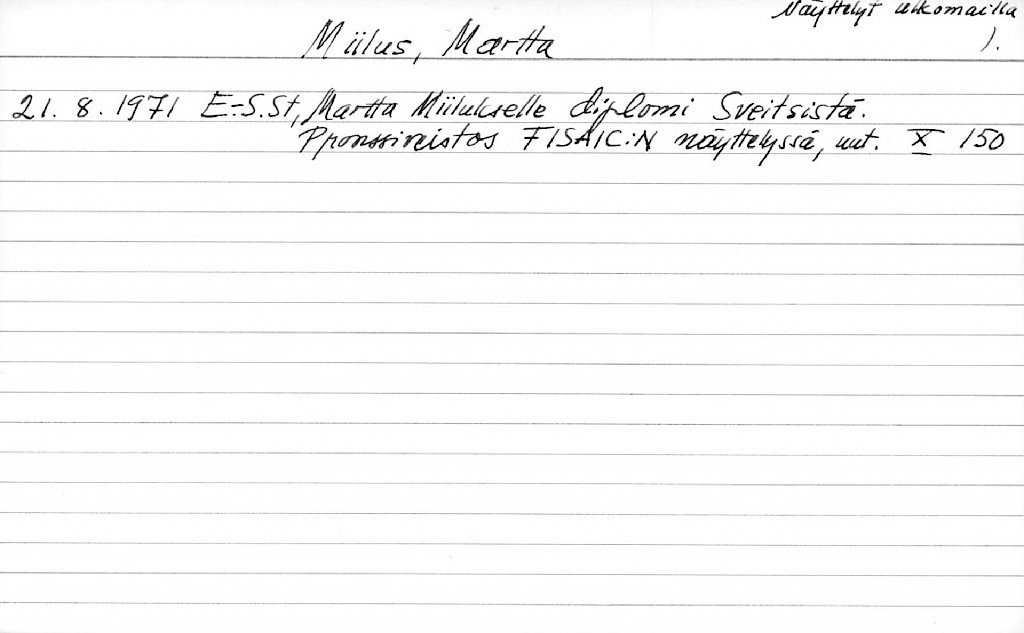 Näyttelyt ulkomailla
Miilus, Martta 1.
21. 8. 1971 E-S.St, Martta Miilukselle diplomi Sveitsistä.
Ppronssiveistos FISAIC:N näyttelyssä, uut. X 150